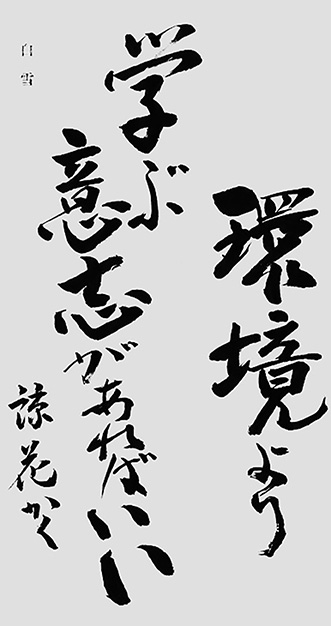 環境より
学ぶ
意志があればいい
諒花かく
白雪